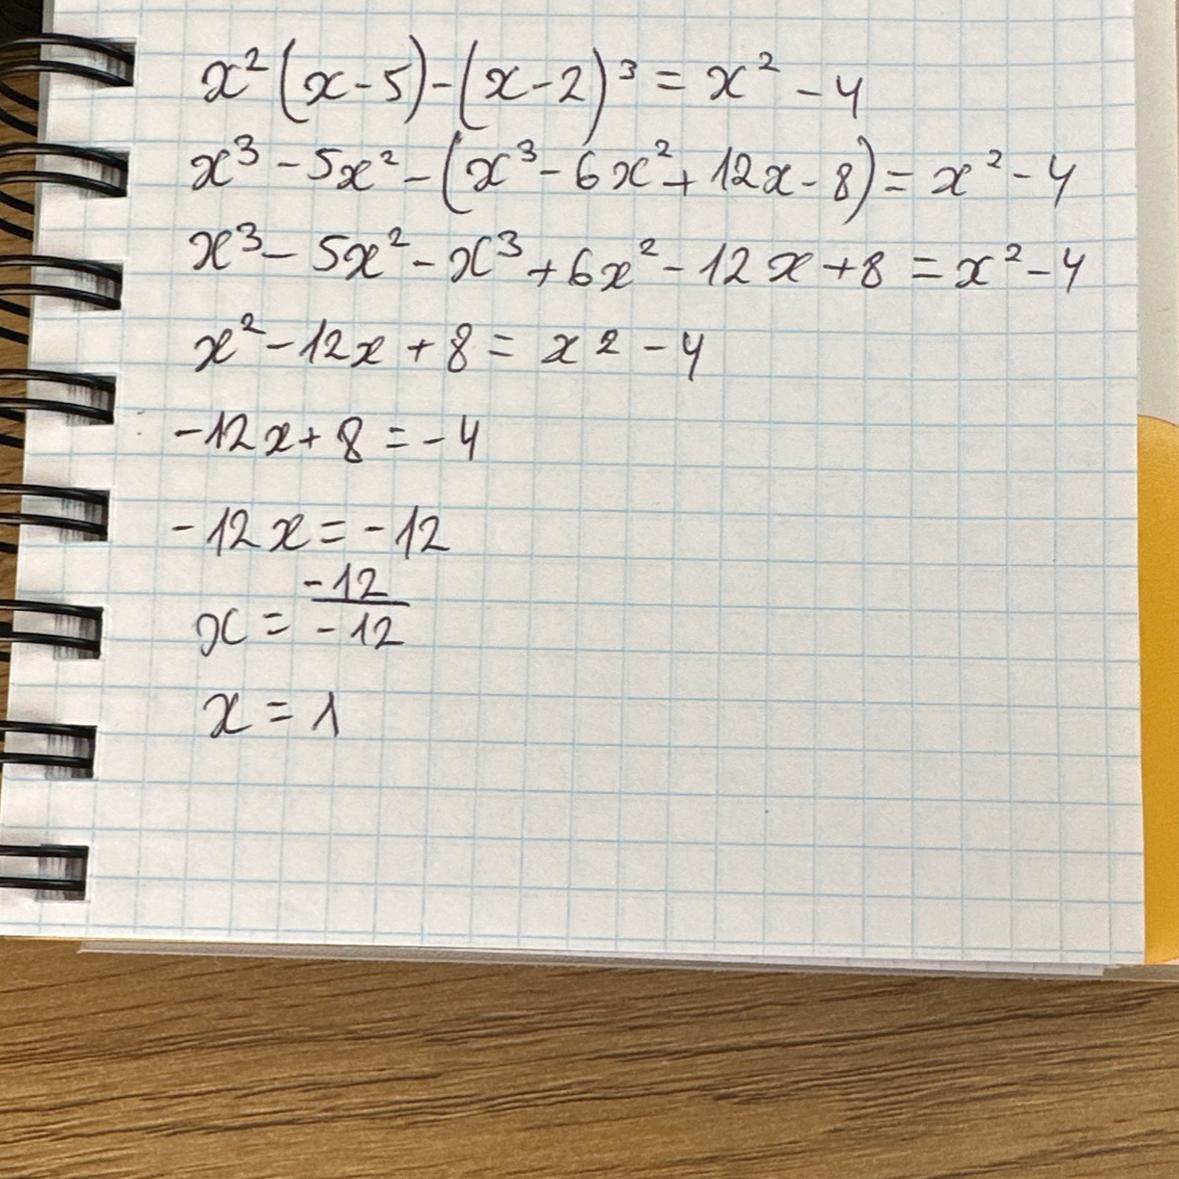 x²(x-5)-(x-2)³=x²-4
x³-5x²-(x³-6x²+12x-8)=x²-4
x³-5x²-x³+6x²-12x+8=x²-4
x²-12x+8=x2-4
-12x+8=-4
-12x=-12
x=-12/-12
x=1